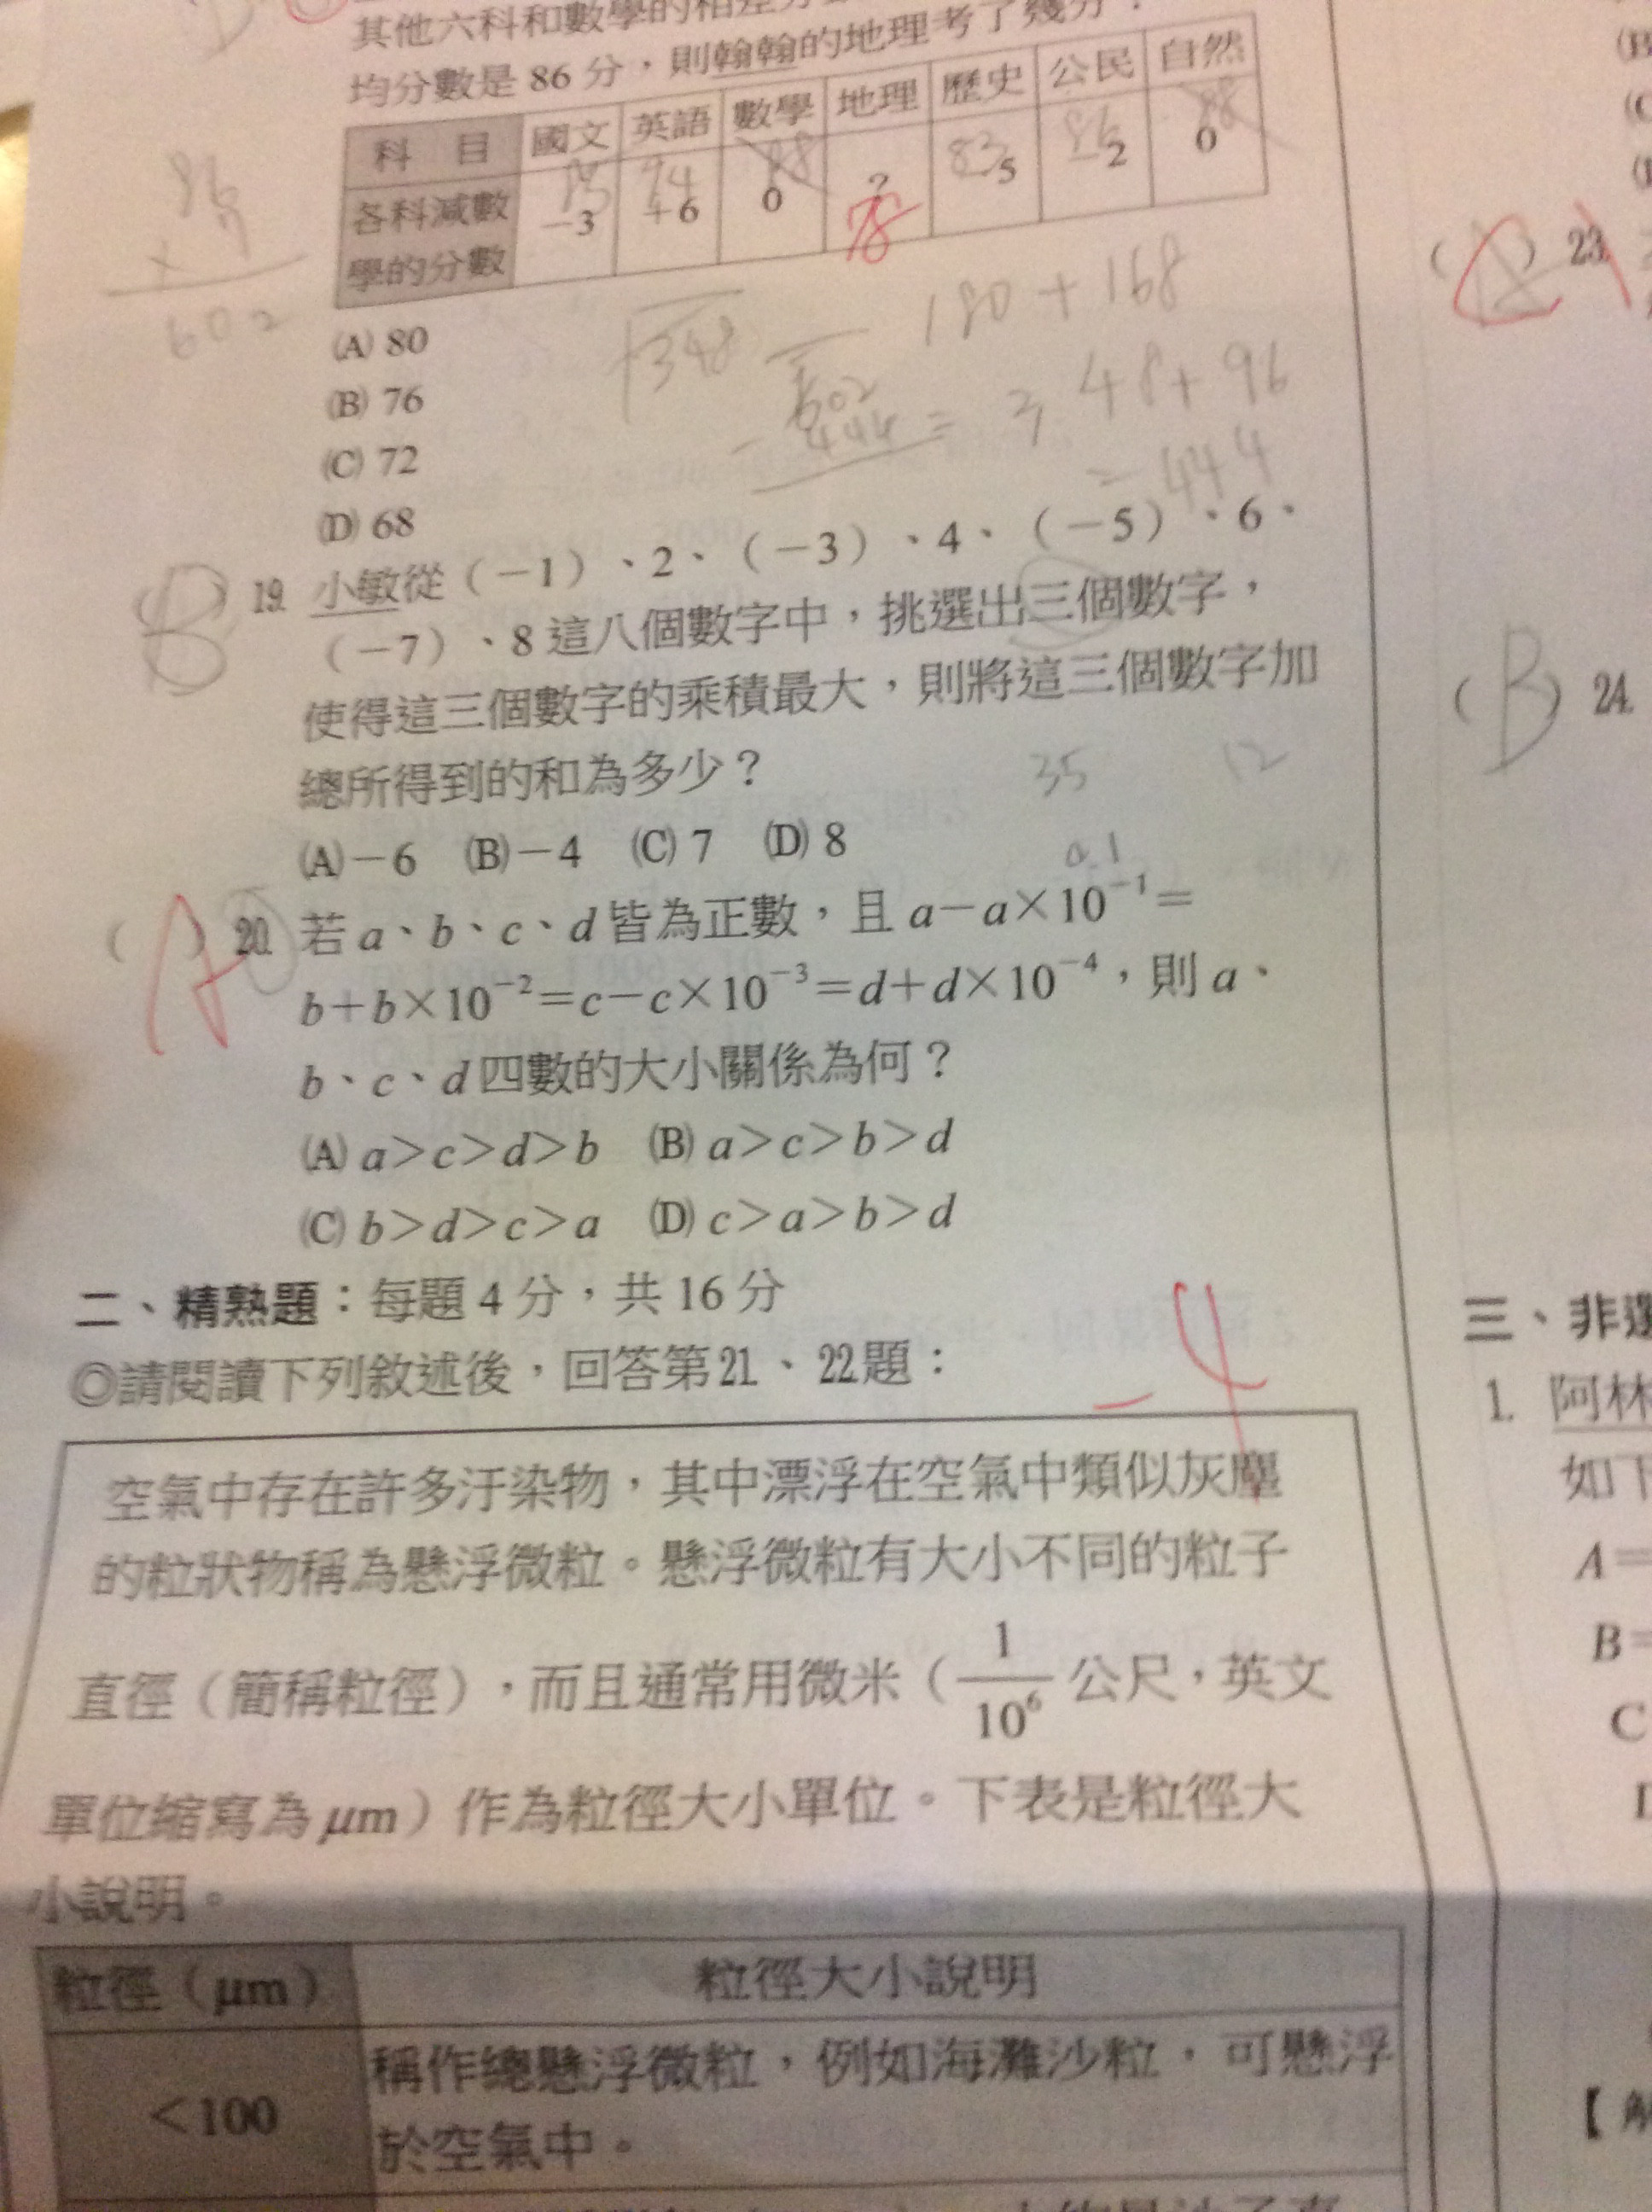 其他六科和數學的相差分
均分數是 86 分，則翰翰的地理考了幾分？
科 目 國文 英語 數學 地理 歷史 公民 自然
各科減數學的分數 －3 ＋6 0 ? －5 －2 0
85 94 88 78 83 86 88
86
× 7
602
(A) 80
(B) 76
(C) 72
(D) 68
348
180 + 168
602
－ 444
= 348 + 96
= 444
B
19. 小敏從（－1）、2、（－3）、4、（－5）、6、
（－7）、8 這八個數字中，挑選出三個數字，
使得這三個數字的乘積最大，則將這三個數字加
總所得到的和為多少？
35 12
(A)－6 (B)－4 (C) 7 (D) 8
0.1
A
20. 若 a、b、c、d 皆為正數，且 a－a×10⁻¹＝
b＋b×10⁻²＝c－c×10⁻³＝d＋d×10⁻⁴，則 a、
b、c、d 四數的大小關係為何？
(A) a＞c＞d＞b (B) a＞c＞b＞d
(C) b＞d＞c＞a (D) c＞a＞b＞d
二、精熟題：每題 4 分，共 16 分
－4
◎請閱讀下列敘述後，回答第 21、22 題：
空氣中存在許多汙染物，其中漂浮在空氣中類似灰塵
的粒狀物稱為懸浮微粒。懸浮微粒有大小不同的粒子
直徑（簡稱粒徑），而且通常用微米（1/10⁶ 公尺，英文
單位縮寫為 μm）作為粒徑大小單位。下表是粒徑大
小說明。
粒徑（μm） 粒徑大小說明
＜100 稱作總懸浮微粒，例如海灘沙粒，可懸浮
於空氣中。
( ) 23.
(B) 24.
三、非選
1. 阿林
如下
A＝
B＝
C
【解